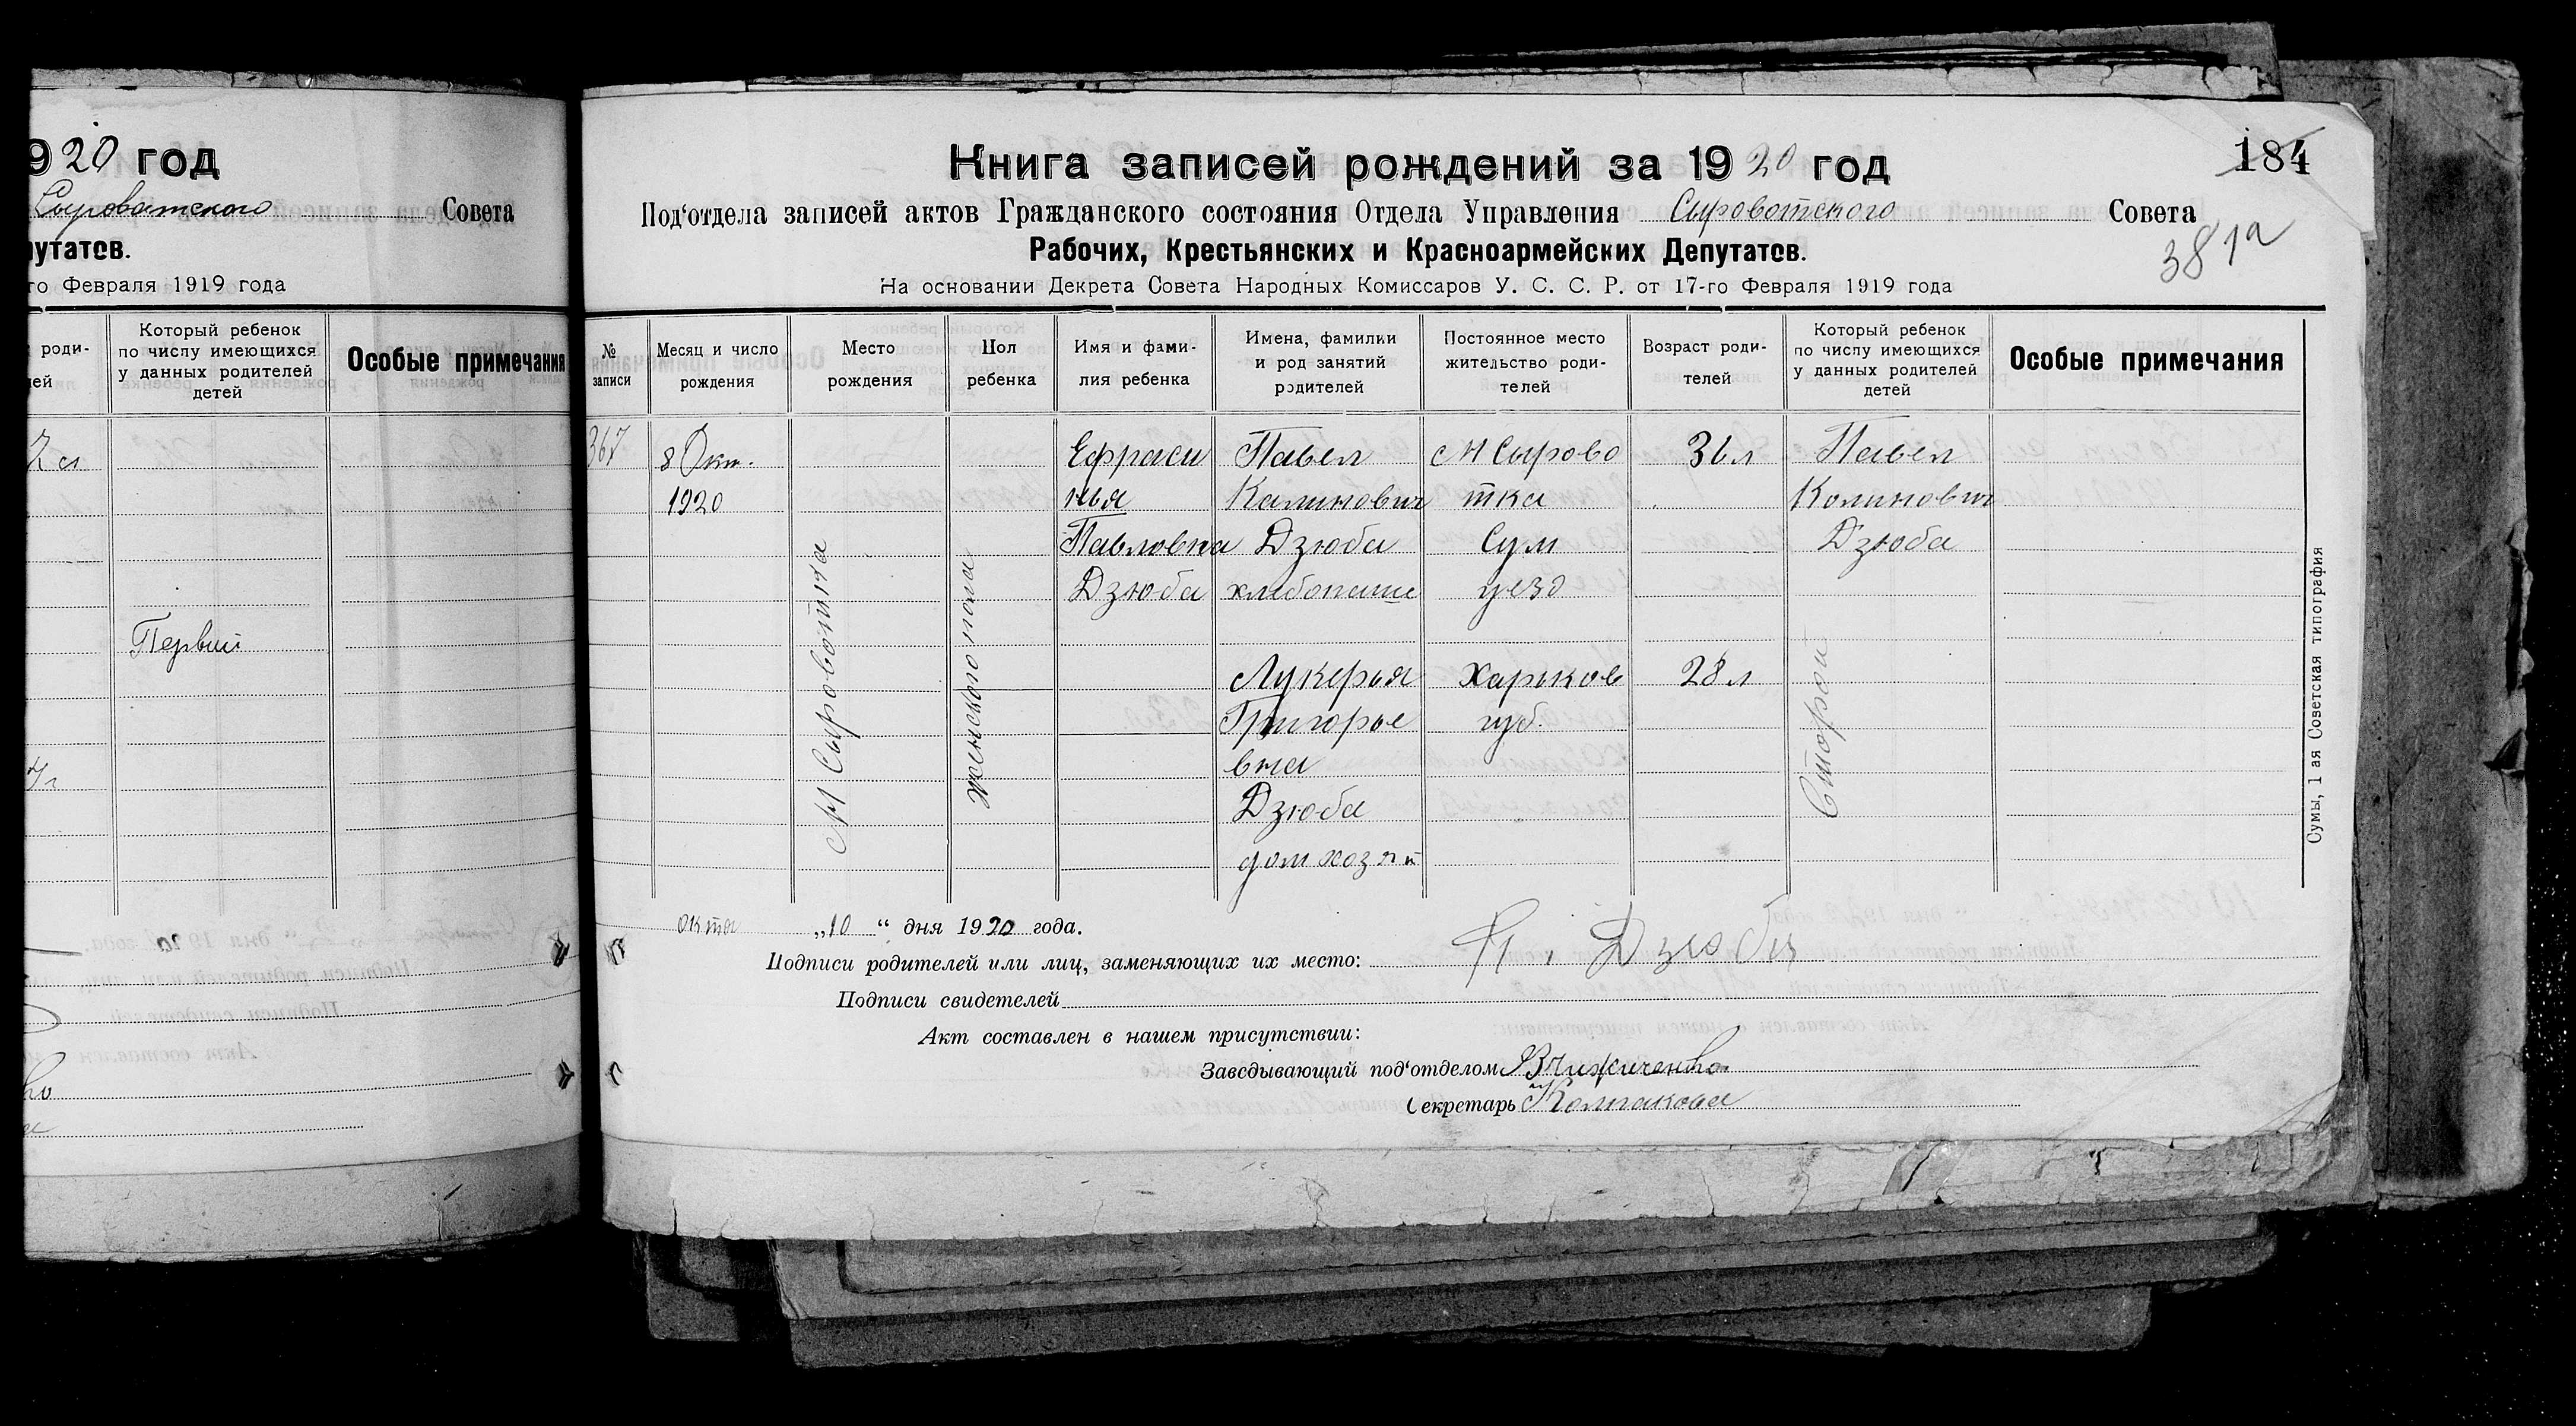 920 год
Сыроватского Совета
путатов.
го Февраля 1919 года
роди-
лей
Который ребенок
по числу имеющихся
у данных родителей
детей
Особые примечания
Первий
184
Книга записей рождений за 1920 год
Под‘отдела записей актов Гражданского состояния Отдела Управления Сыроватского Совета
Рабочих, Крестьянских и Красноармейских Депутатов.
На основании Декрета Совета Народных Комиссаров У. С. С. Р. от 17-го Февраля 1919 года
№
записи
Месяц и число
рождения
Место
рождения
Пол
ребенка
Имя и фами-
лия ребенка
Имена, фамилии
и род занятий
родителей
Постоянное место
жительство роди-
телей
Возраст роди-
телей
Который ребенок
по числу имеющихся
у данных родителей
детей
Особые примечания
367
8 Окт.
1920
с Н Сыроватка
женского пола
Ефраси
нья
Павловна
Дзюба
Павел
Калинович
Дзюба
хлебопаше
Лукерья
Григорье
вна
Дзюба
дом хозяй
с Н Сырово
тка
Сум
уезд
Харьков
губ.
36 л
28 л
Павел
Калинович
Дзюба
Сторой
Сумы, 1 ая Советская типография
октя „10 “ дня 1920 года.
Подписи родителей или лиц, заменяющих их место: П. Дзюба
Подписи свидетелей
Акт составлен в нашем присутствии:
Заведывающий под‘отделом
Секретарь Колмакова